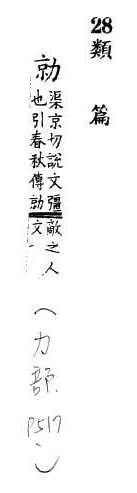 28 類篇
勍
渠京切說文彊
也引春秋傳勍
敵之人
文一
(力部 P517)